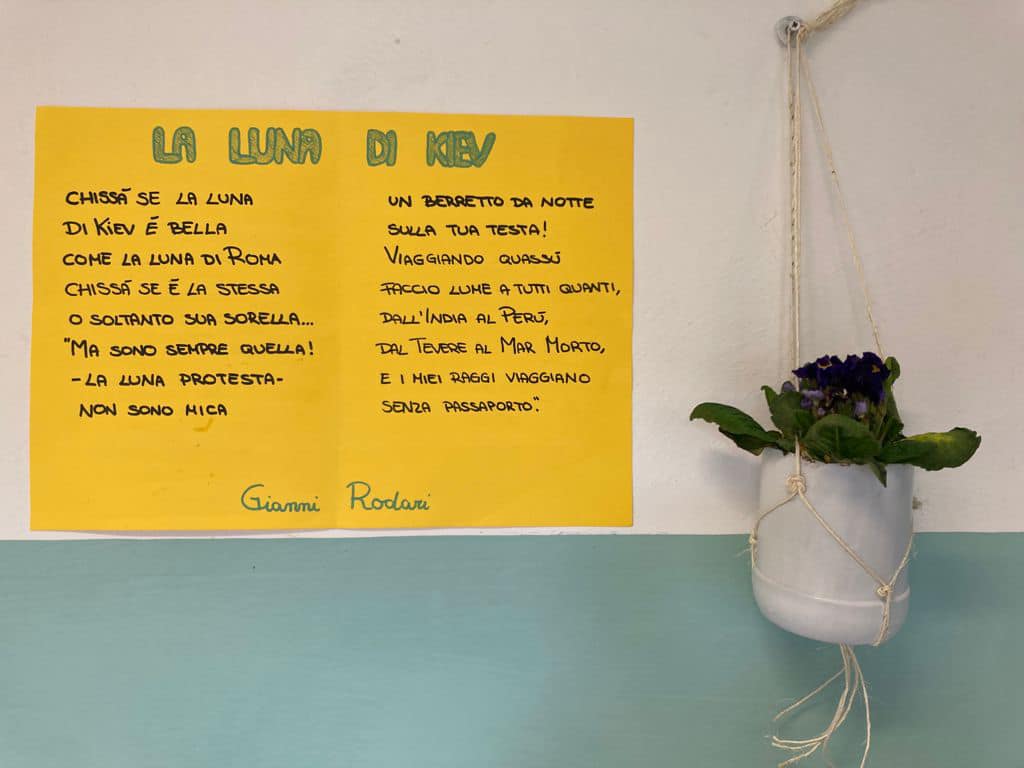 LA LUNA DI KIEV
CHISSÁ SE LA LUNA
DI KIEV É BELLA
COME LA LUNA DI ROMA
CHISSÁ SE É LA STESSA
O SOLTANTO SUA SORELLA...
"MA SONO SEMPRE QUELLA!
-LA LUNA PROTESTA-
NON SONO MICA
UN BERRETTO DA NOTTE
SULLA TUA TESTA!
VIAGGIANDO QUASSÚ
FACCIO LUME A TUTTI QUANTI,
DALL'INDIA AL PERÚ,
DAL TEVERE AL MAR MORTO,
E I MIEI RAGGI VIAGGIANO
SENZA PASSAPORTO."
Gianni Rodari